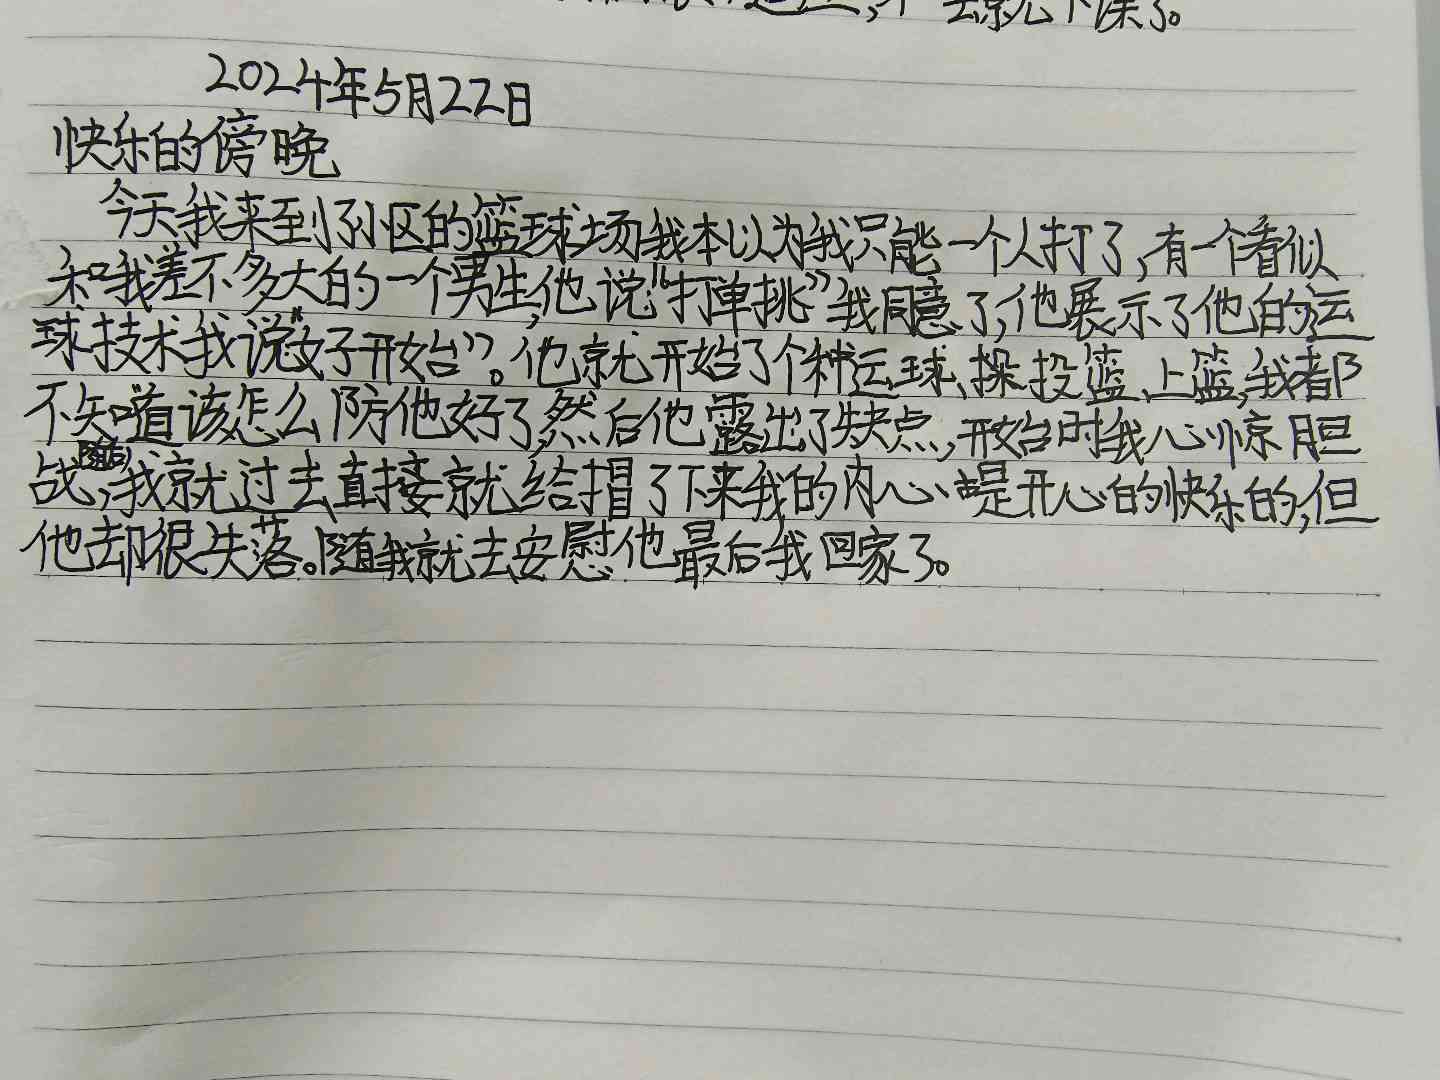 去就下课了。
2024年5月22日
快乐的傍晚
今天我来到了小区的篮球场我本以为我只能一个人打了,有一个看似
和我差不多大的一个男生,他说“打单挑”我同意了,他展示了他的运
球技术我说“好开始”。他就开始了个种运球、操投篮、上篮,我都
不知道该怎么防他好了,然后他露出了缺点,开始时我心惊胆
战,我就过去直接就给措了下来我的内心是开心的快乐的,但
他却很失落。随我就去安慰他最后我回家了。